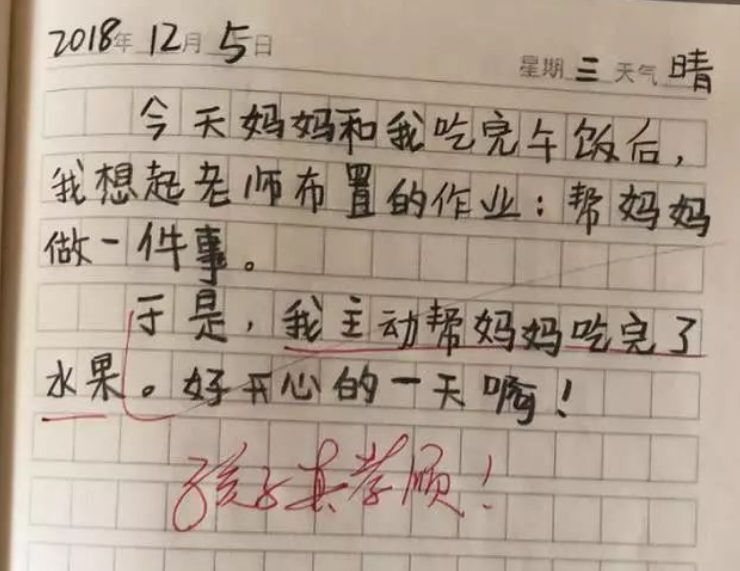 2018年 12月 5日
星期 三 天气 晴
今天妈妈和我吃完午饭后，
我想起老师布置的作业：帮妈妈
做一件事。
于是，我主动帮妈妈吃完了
水果。好开心的一天啊！
孩子真孝顺！